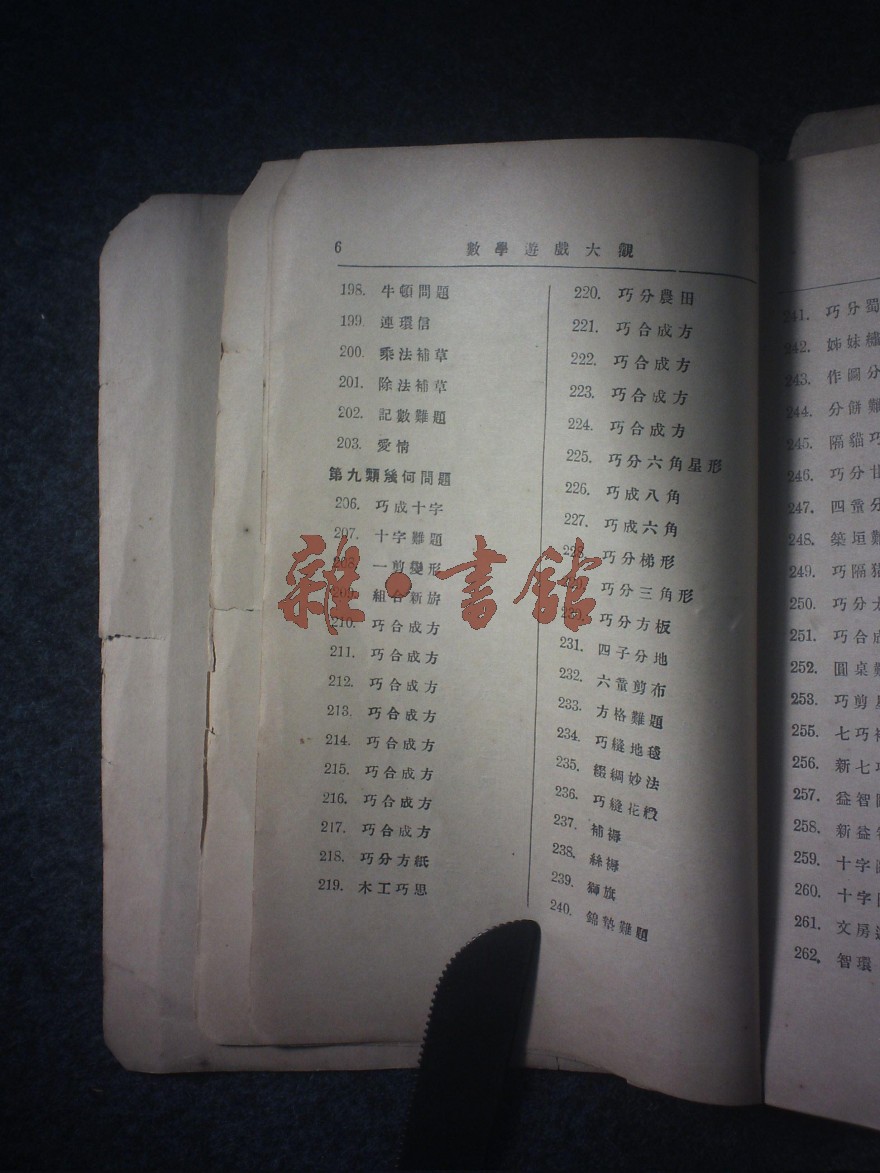 6 數學遊戲大觀
198. 牛頓問題
199. 連環信
200. 乘法補草
201. 除法補草
202. 記數難題
203. 愛情
第九類幾何問題
206. 巧成十字
207. 十字難題
208. 一剪變形
209. 組合新
210. 巧合成方
211. 巧合成方
212. 巧合成方
213. 巧合成方
214. 巧合成方
215. 巧合成方
216. 巧合成方
217. 巧合成方
218. 巧分方紙
219. 木工巧思
220. 巧分農田
221. 巧合成方
222. 巧合成方
223. 巧合成方
224. 巧合成方
225. 巧分六角星形
226. 巧成八角
227. 巧成六角
228. 巧分梯形
229. 巧分三角形
230. 巧分方板
231. 四子分地
232. 六童剪布
233. 方格難題
234. 巧縫地毯
235. 綴綢妙法
236. 巧縫花緞
237. 補褥
238. 絲褥
239. 獅旗
240. 錦墊難題
雜·書館
241. 巧分蜀
242. 姊妹繡
243. 作圖分
244. 分餅難
245. 隔貓巧
246. 巧分甘
247. 四童分
248. 築垣難
249. 巧隔豬
250. 巧分
251. 巧合成
252. 圓桌難
253. 巧剪星
255. 七巧
256. 新七巧
257. 益智圖
258. 新益智
259. 十字
260. 十字
261. 文房
262. 智環